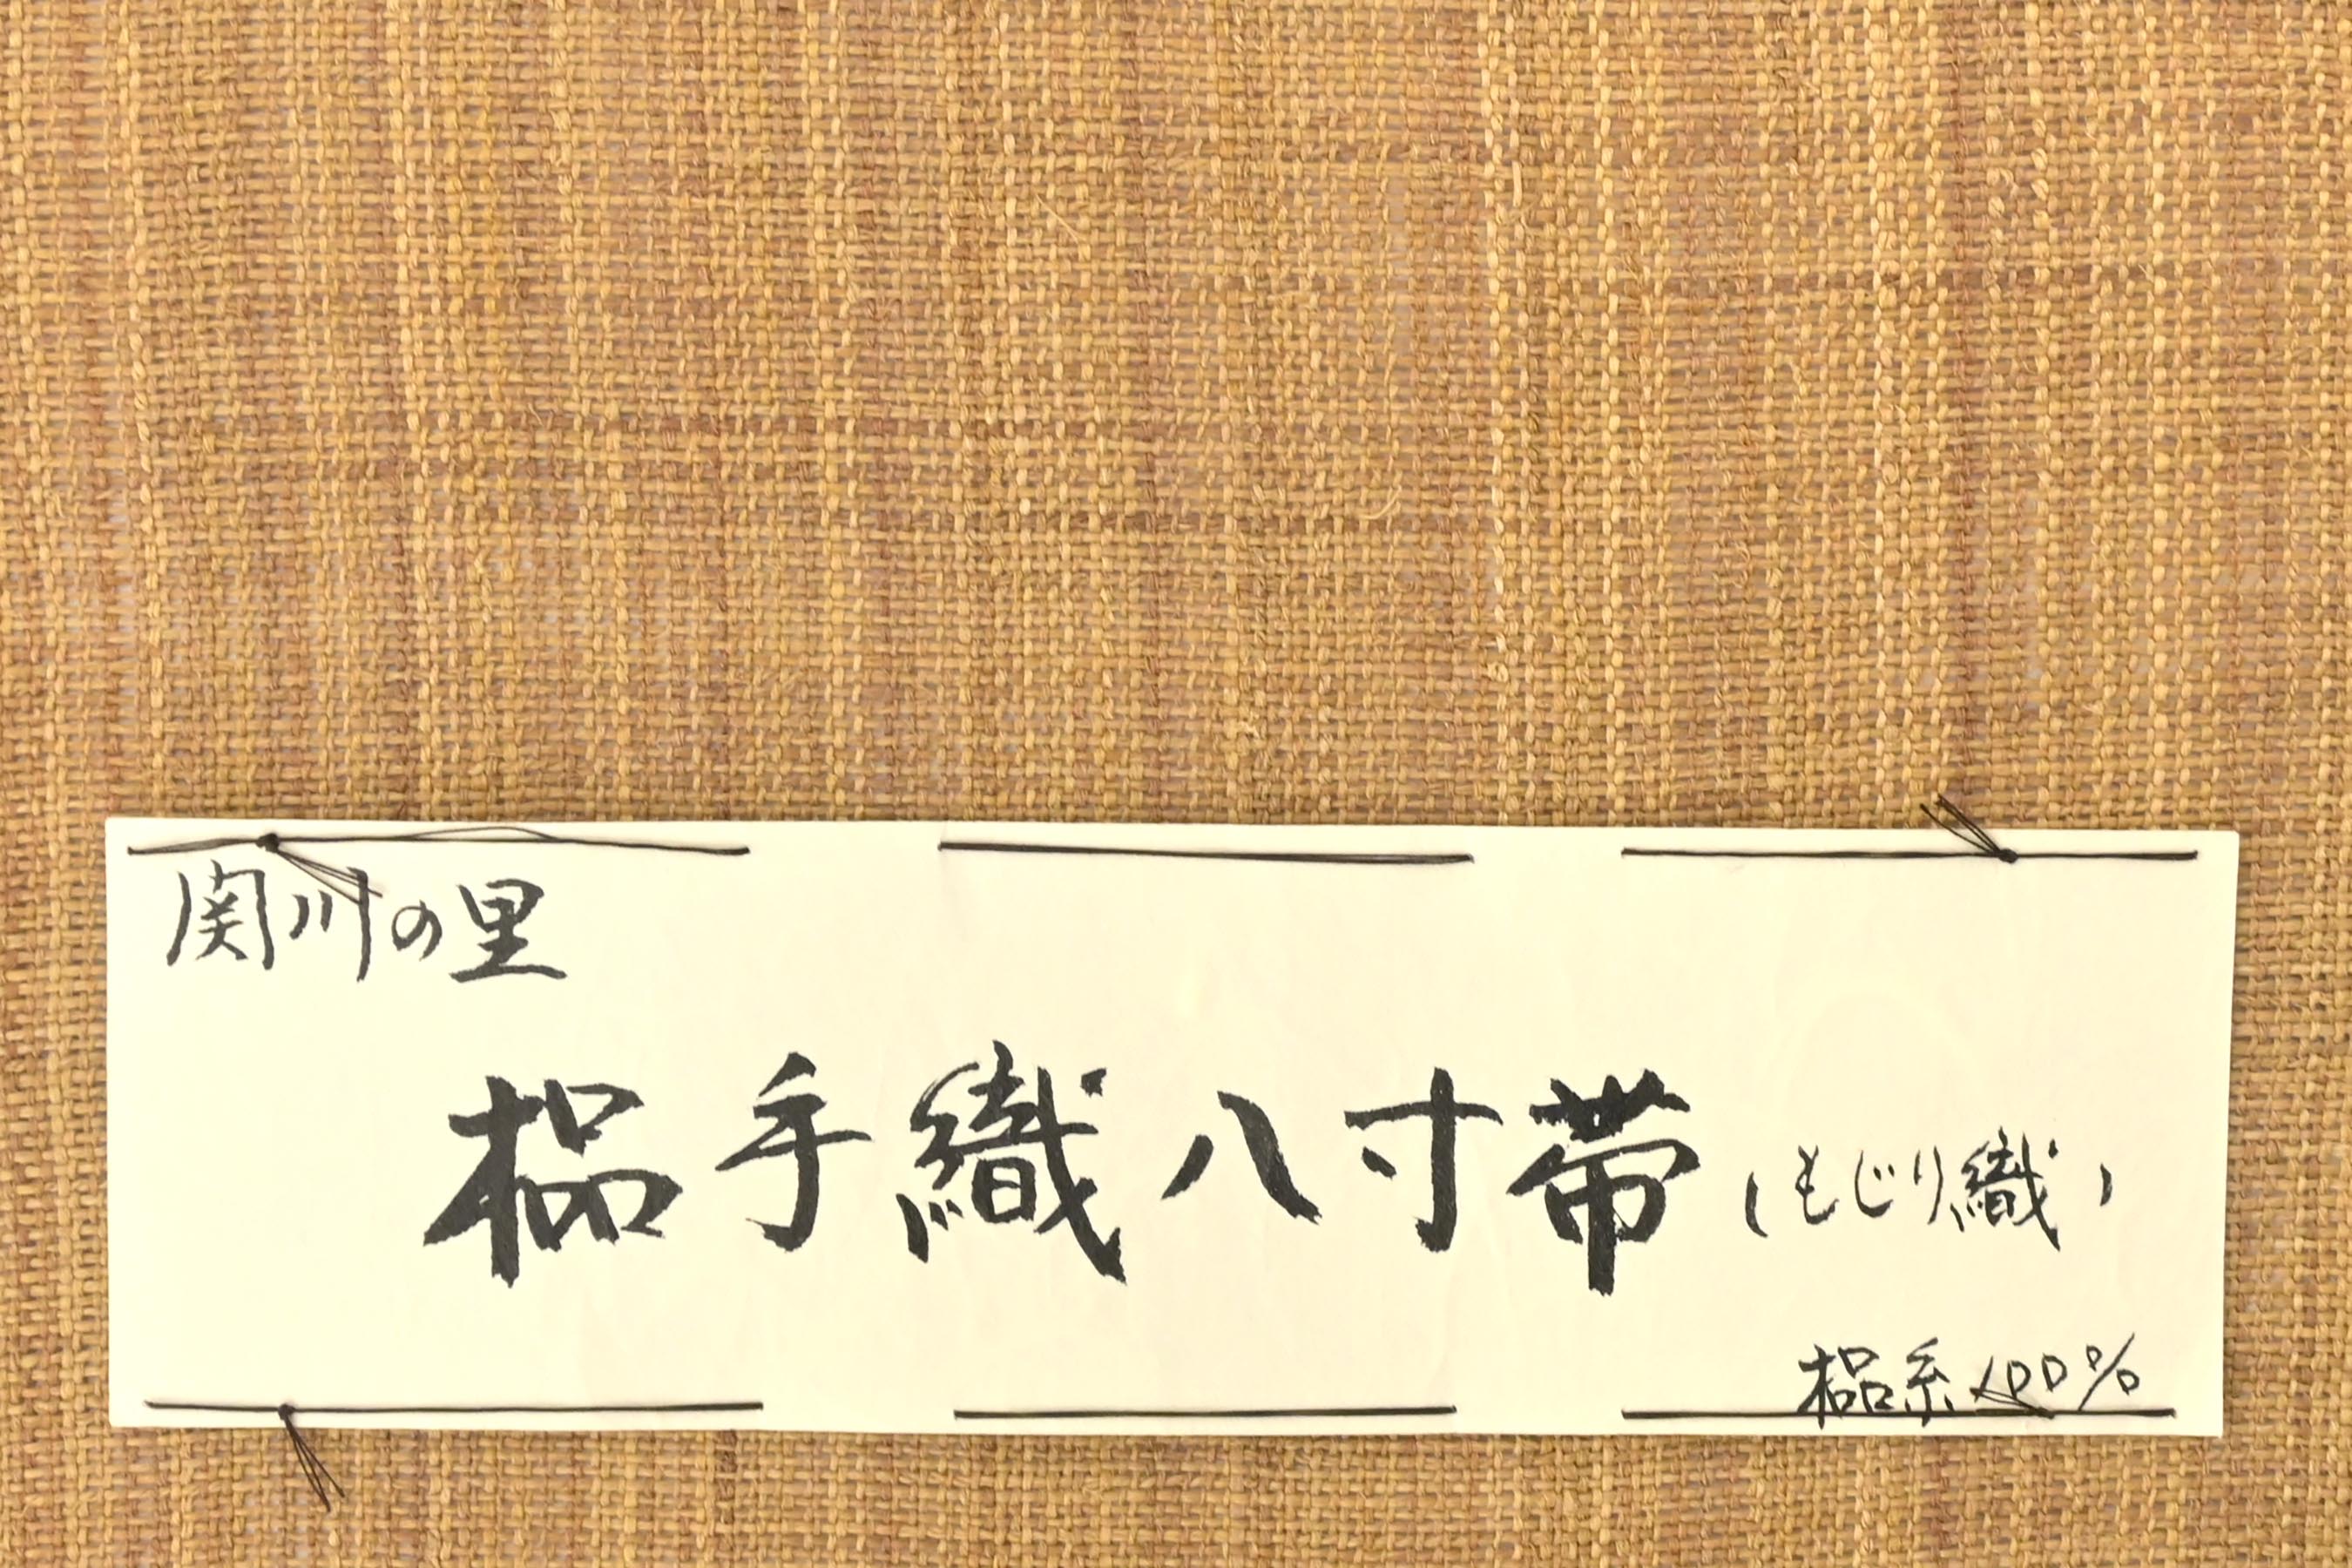 関川の里
榀手織八寸帯（もじり織）
榀糸100%